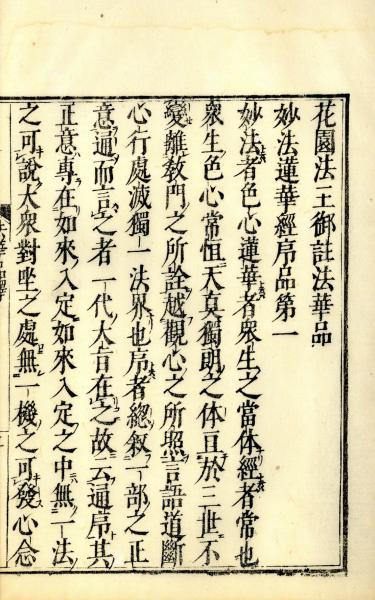 花園法王御註法華品
妙法蓮華經序品第一
妙法者色心蓮華者衆生之當体經者常也
衆生色心常恒天真獨朗之体亘於三世不
變離教門之所詮越觀心之所照言語道斷
心行處滅獨一法界也序者總叙一部之正
意通而言之者一代大旨在之故云通序其
正意專在如來入定如來入定之中無一法
之可說大衆對坐之處無一機之可發心念